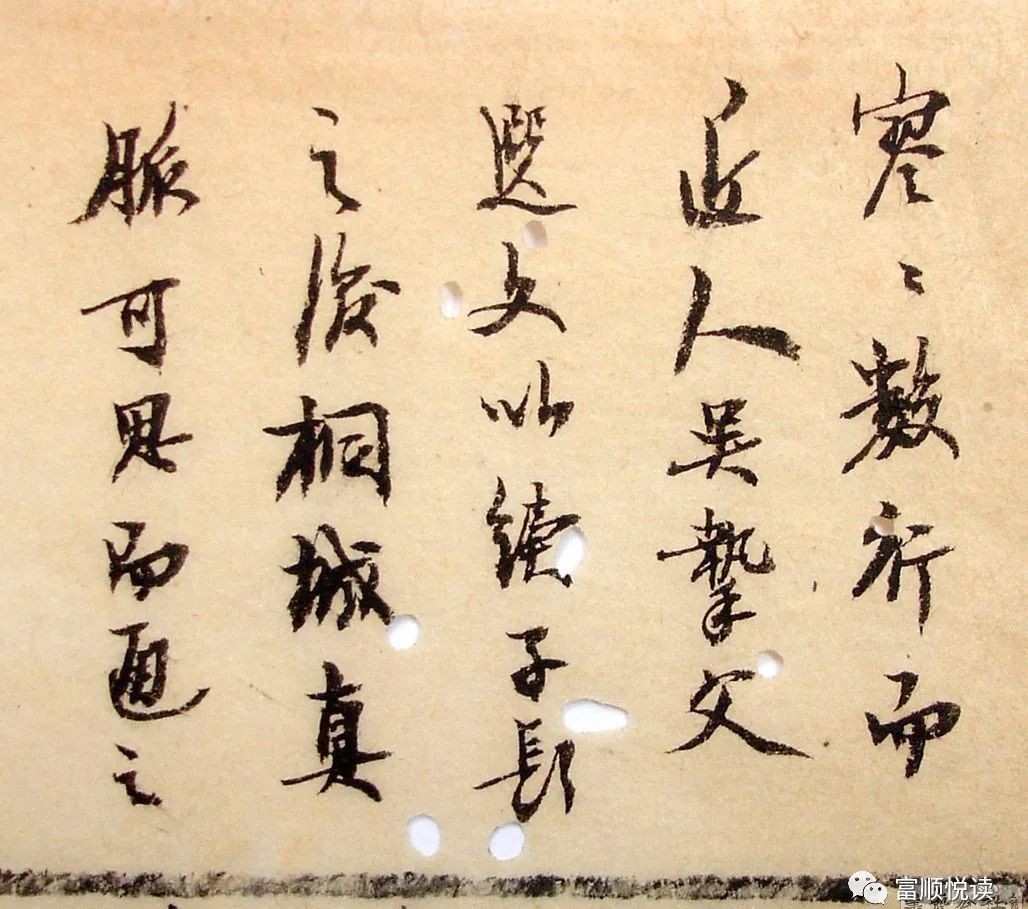 寥〻數行而
近人吳摯父
選文以續子長
之後桐城真
脈可思而之
富顺悦读